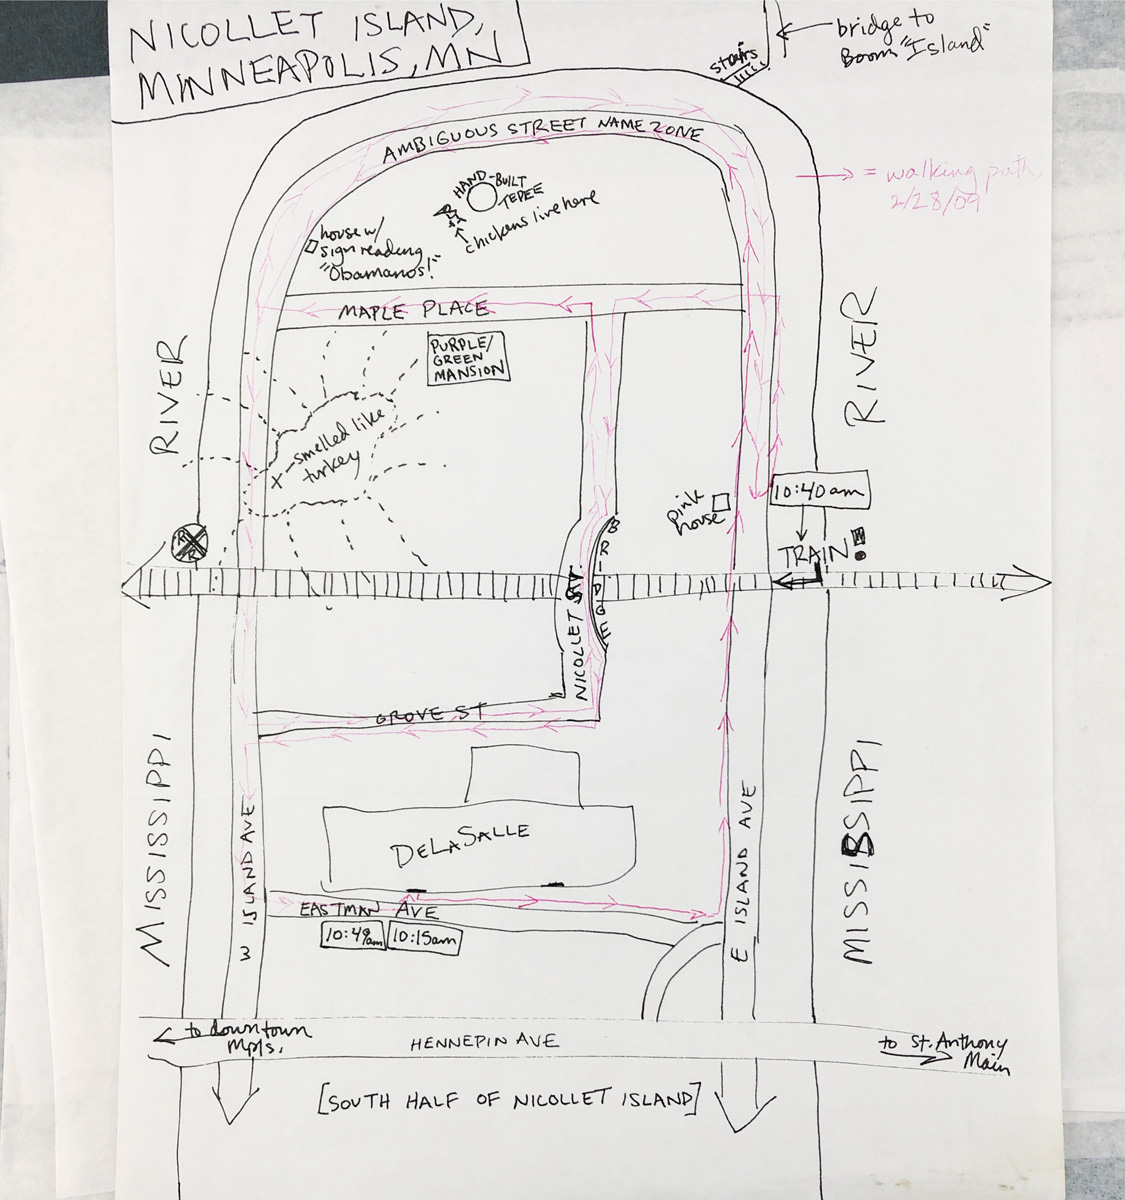 NICOLLET ISLAND,
MINNEAPOLIS, MN
stairs
bridge to
Boom "Island"
AMBIGUOUS STREET NAME ZONE
= walking path,
2/28/09
HAND-BUILT
TEPEE
chickens live here
house w/
sign reading
"Obamanos!"
MAPLE PLACE
PURPLE/
GREEN
MANSION
RIVER
RIVER
smelled like
turkey
X
pink
house
10:40am
TRAIN!
R R
BRIDGE
NICOLLET ST
GROVE ST
DELASALLE
MISSISSIPPI
MISSISSIPPI
W ISLAND AVE
E ISLAND AVE
EASTMAN AVE
10:49am
10:15am
to downtown
Mpls.
HENNEPIN AVE
to St. Anthony
Main
[SOUTH HALF OF NICOLLET ISLAND]